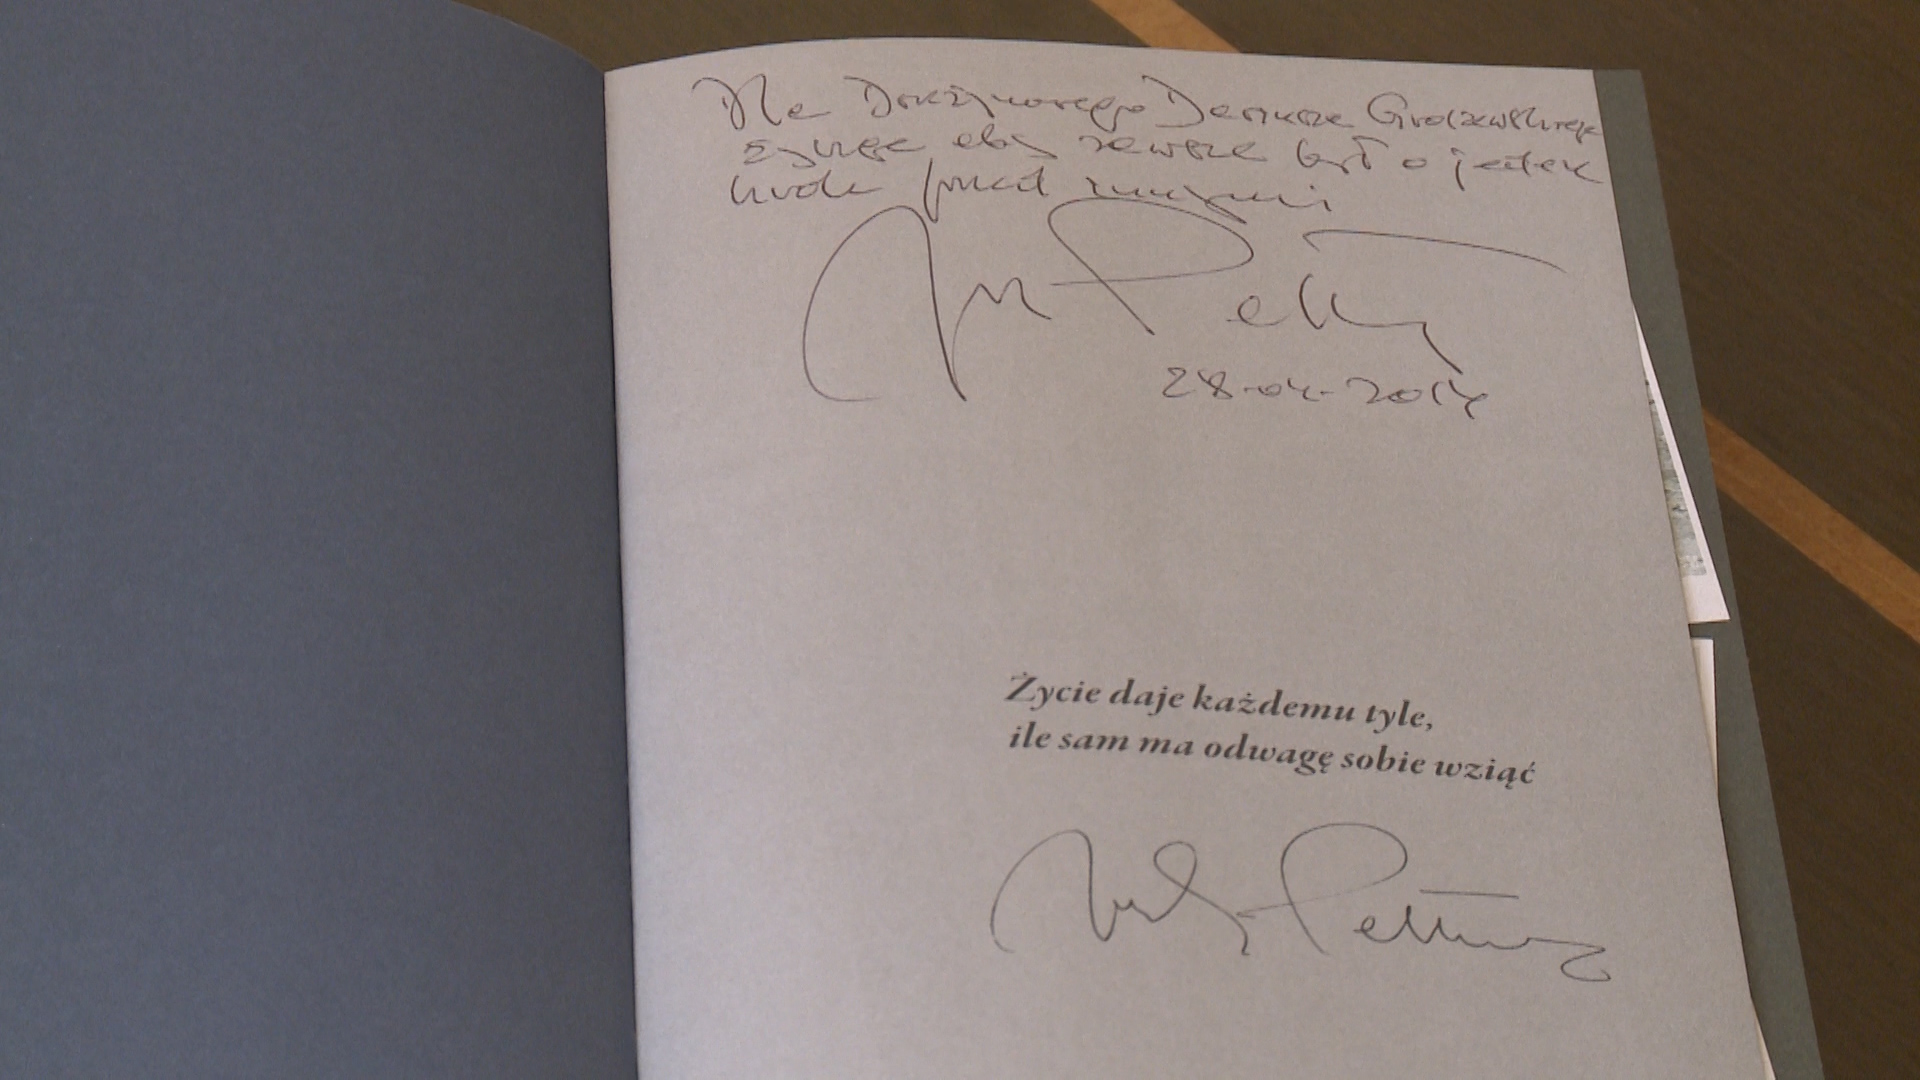 Dla Drużynowego Dariusza
życzę aby zawsze był o jeden
krok przed innymi
28-04-2014
Życie daje każdemu tyle,
ile sam ma odwagę sobie wziąć